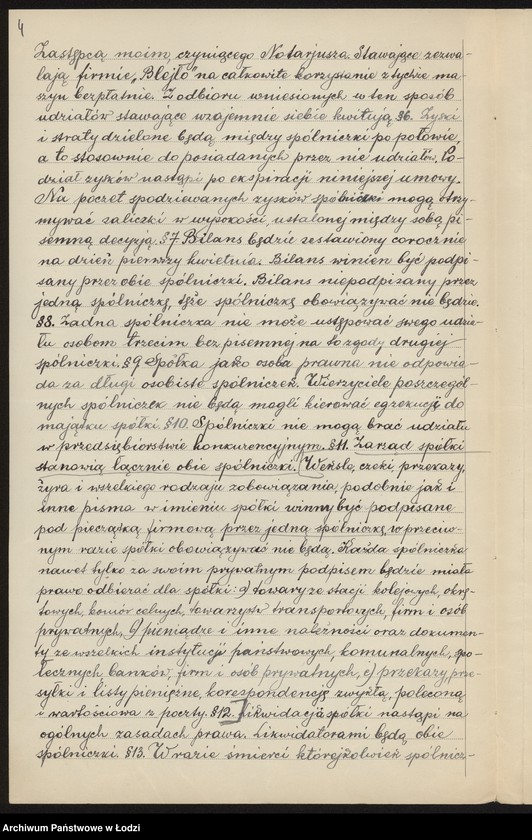 4
Zastępcą moim, czyniącego Notarjusza. Stawające zezwa-
lają firmie „Blejto" na całkowite korzystanie z tychże ma-
szyn bezpłatnie. Z odbioru wniesionych w ten sposób
udziałów stawające wzajemnie siebie kwitują. §6. Zyski
i straty dzielone będą między spólniczki po połowie,
a to stosownie do posiadanych przez nie udziałów. Po-
dział zysków nastąpi po ekspiracji niniejszej umowy.
Na poczet spodziewanych zysków spólniczki mogą otrzy-
mywać zaliczki w wysokości, ustalonej między sobą pi-
semną decyzją. §7 Bilans będzie zestawiony corocznie
na dzień pierwszy kwietnia. Bilans winien być podpi-
sany przez obie spólniczki. Bilans niepodpisany przez
jedną spólniczkę, tęże spólniczkę obowiązywać nie będzie.
§8. Żadna spólniczka nie może ustępować swego udzia-
łu osobom trzecim bez pisemnej na to zgody drugiej
spólniczki. §9 Spółka jako osoba prawna nie odpowia-
da za długi osobiste spólniczek. Wierzyciele poszczegól-
nych spólniczek nie będą mogli kierować egzekucji do
majątku spółki. §10. Spólniczki nie mogą brać udziału
w przedsiębiorstwie konkurencyjnym. §11. Zarząd spółki
stanowią łącznie obie spólniczki. Weksle, czeki, przekazy,
żyra i wszelkiego rodzaju zobowiązania, podobnie jak i
inne pisma w imieniu spółki winny być podpisane
pod pieczątką firmową przez jedną spólniczkę, w przeciw-
nym razie spółki obowiązywać nie będą. Każda spólniczka
nawet tylko za swoim prywatnym podpisem będzie miała
prawo odbierać dla spółki: a) towary ze stacji kolejowych, okrę-
towych, komór celnych, towarzystw transportowych, firm i osób
prywatnych, b) pieniądze i inne należności oraz dokumen-
ty ze wszelkich instytucji państwowych, komunalnych, spo-
łecznych, banków, firm i osób prywatnych, c) przekazy, prze-
syłki i listy pieniężne, korespondencję zwykłą, poleconą
i wartościową z poczty. §12. Likwidacja spółki nastąpi na
ogólnych zasadach prawa. Likwidatorami będą obie
spólniczki. §13. W razie śmierci którejkolwiek spólnicz-
Archiwum Państwowe w Łodzi